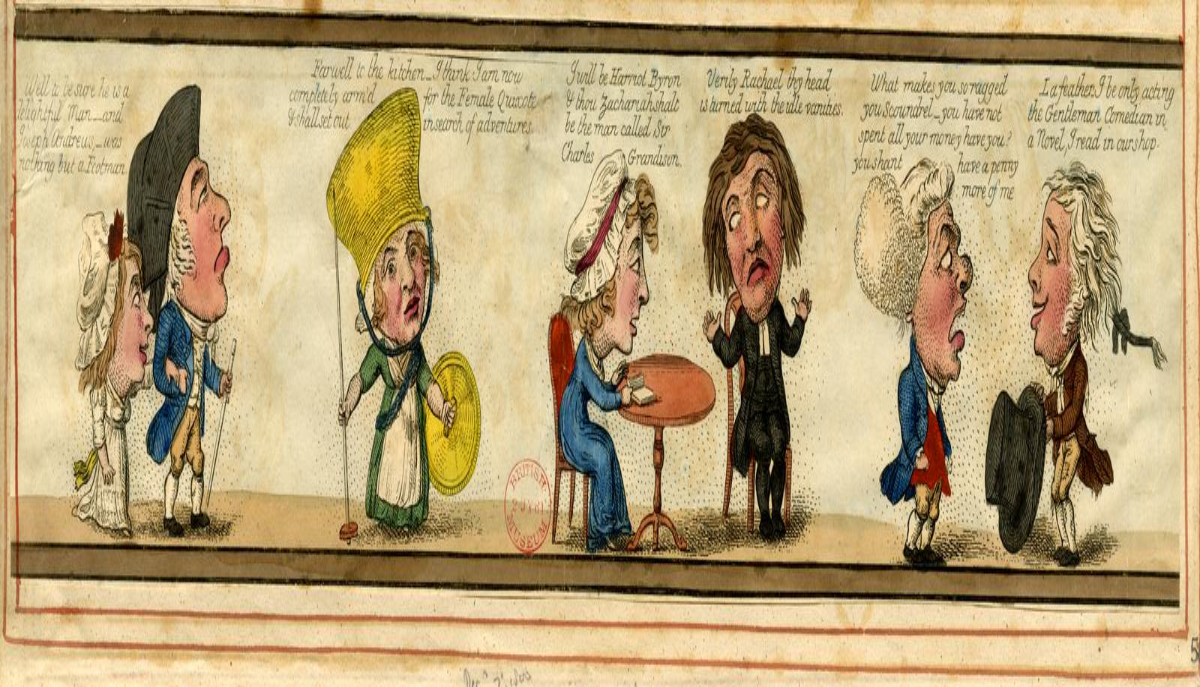 Well to be sure he is a
delightful Man_and
Joseph Andrews_was
nothing but a Footman.
Farwell to the kitchen_I think I am now
completely arm'd for the Female Quixote
& shall set out in search of adventures
I will be Harriot Byron
& thou Zachariah shalt
be the man called Sir
Charles Grandison.
Verily Rachael thy head
is turned with the idle vanities.
What makes you so ragged
you Scoundrel_you have not
spent all your money have you?
you shant have a penny
more of me
La father I be only acting
the Gentleman Comedian in
a Novel I read in our shop.
BRITISH
MUSEUM
5